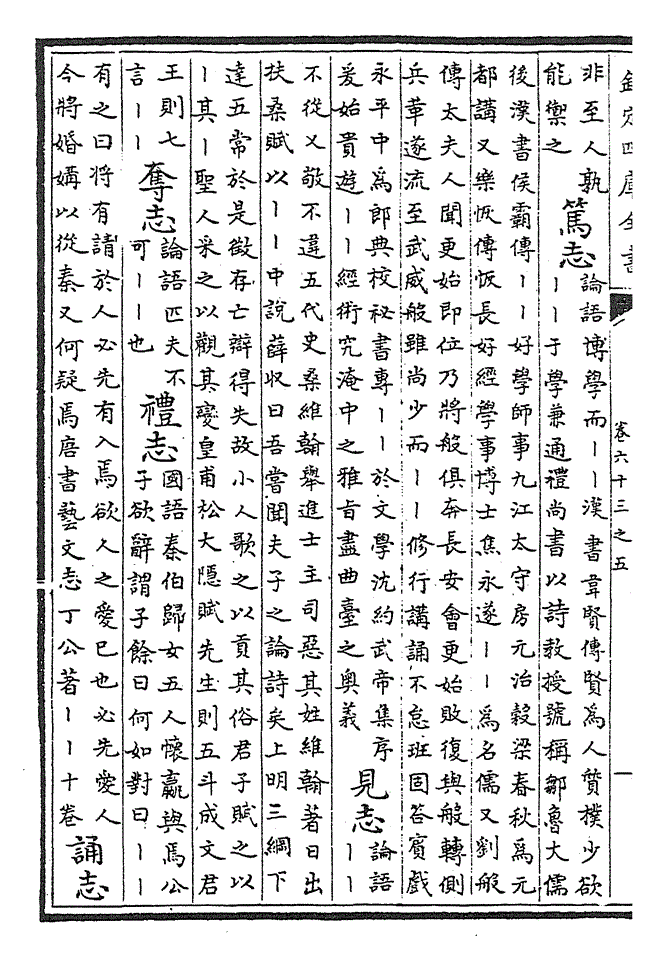 欽定四庫全書
卷六十三之五
一
非至人孰
能禦之
篤志
論語博學而丨丨漢書韋賢傳賢為人質樸少欲
丨丨于學兼通禮尚書以詩教授號稱鄒魯大儒
後漢書侯霸傳丨丨好學師事九江太守房元治穀梁春秋為元
都講又樂恢傳恢長好經學事博士焦永遂丨丨為名儒又劉般
傳太夫人聞更始即位乃將般俱奔長安會更始敗復與般轉側
兵革遂流至武威般雖尚少而丨丨修行講誦不怠班固答賓戲
永平中為郎典校祕書專丨丨於文學沈約武帝集序
爰始貴遊丨丨經術究淹中之雅旨盡曲臺之奧義
見志
論語
丨丨
不從又敬不違五代史桑維翰舉進士主司惡其姓維翰著日出
扶桑賦以丨丨中說薛收曰吾嘗聞夫子之論詩矣上明三綱下
達五常於是徵存亡辯得失故小人歌之以貢其俗君子賦之以
丨其丨聖人采之以觀其變皇甫松大隱賦先生則五斗成文君
王則七
言丨丨
奪志
論語匹夫不
可丨丨也
禮志
國語秦伯歸女五人懷嬴與焉公
子欲辭謂子餘曰何如對曰丨丨
有之曰將有請於人必先有入焉欲人之愛己也必先愛人
今將婚媾以從秦又何疑焉唐書藝文志丁公著丨丨十卷
誦志